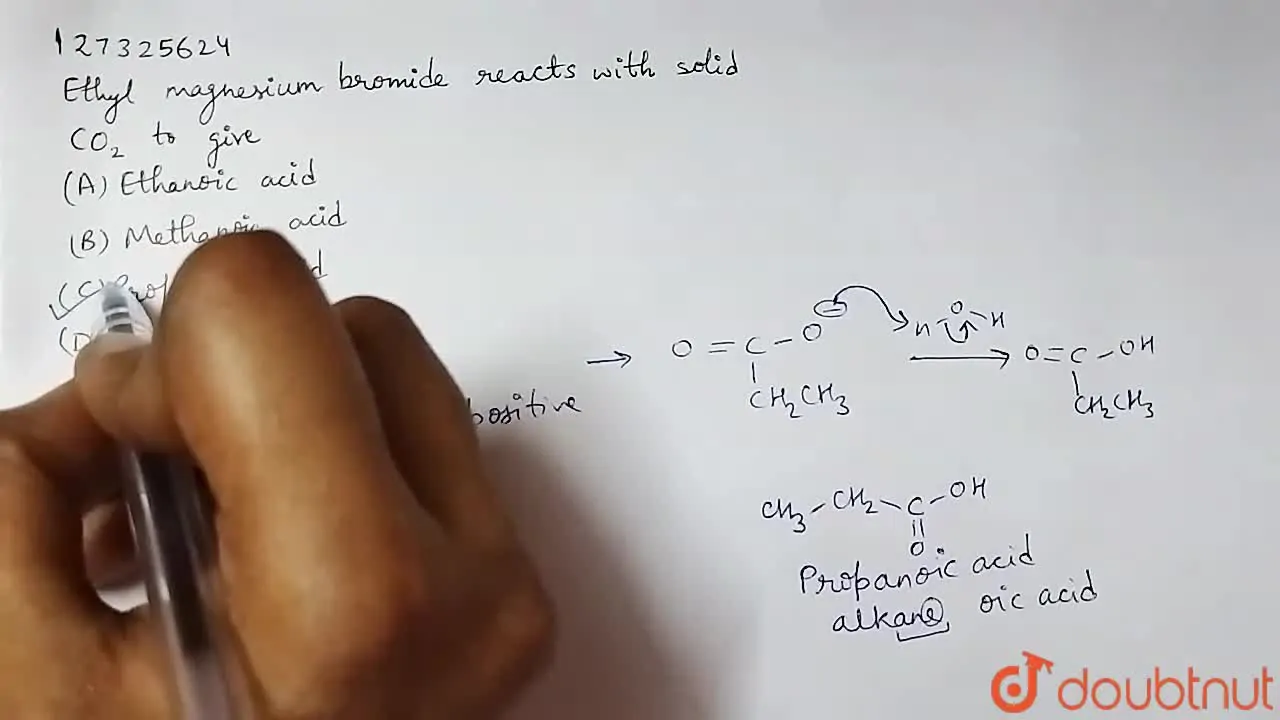 127325624
Ethyl magnesium bromide reacts with solid
CO2 to give
(A) Ethanoic acid
(B) Methanoic acid
(C)
(D
positive
→ O = C - O ⊖ H O H → O = C - OH
CH2CH3 CH2CH3
CH3 - CH2 - C - OH
O
Propanoic acid
alkane oic acid
doubtnut